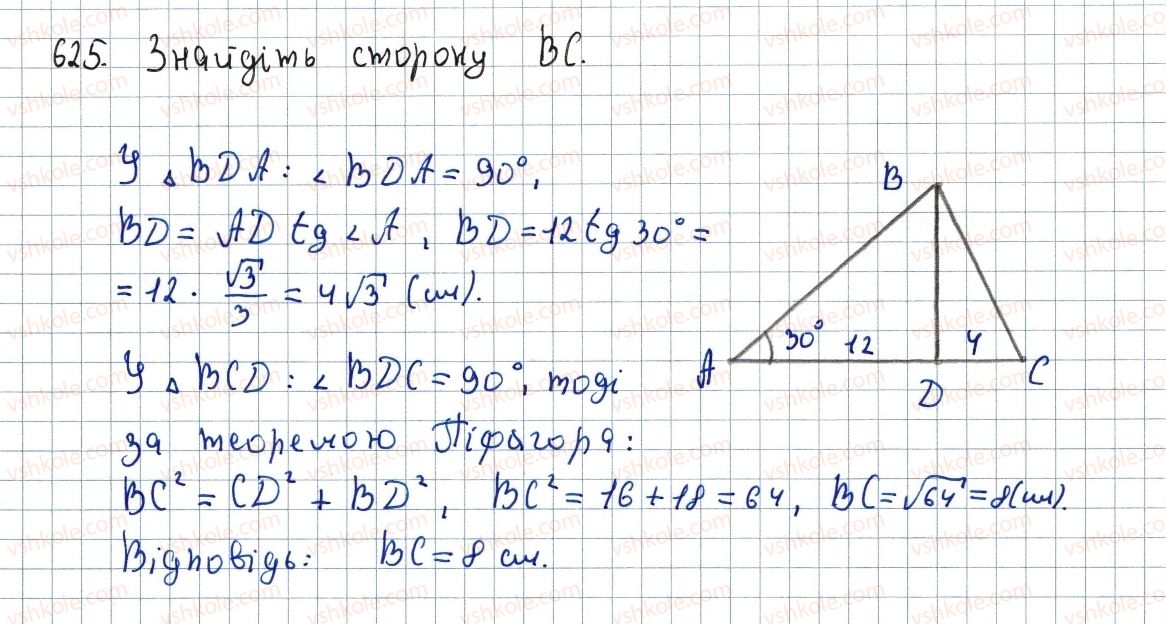 625. Знайдіть сторону BC.
У △ BDA: ∠ BDA = 90°,
BD = AD tg ∠ A, BD = 12 tg 30° =
= 12 · √3/3 = 4√3 (см).
У △ BCD: ∠ BDC = 90°, тоді
за теоремою Піфагора:
BC² = CD² + BD², BC² = 16 + 18 = 64, BC = √64 = 8(см).
Відповідь: BC = 8 см.
B
30° 12 4
A D C
vshkole.com